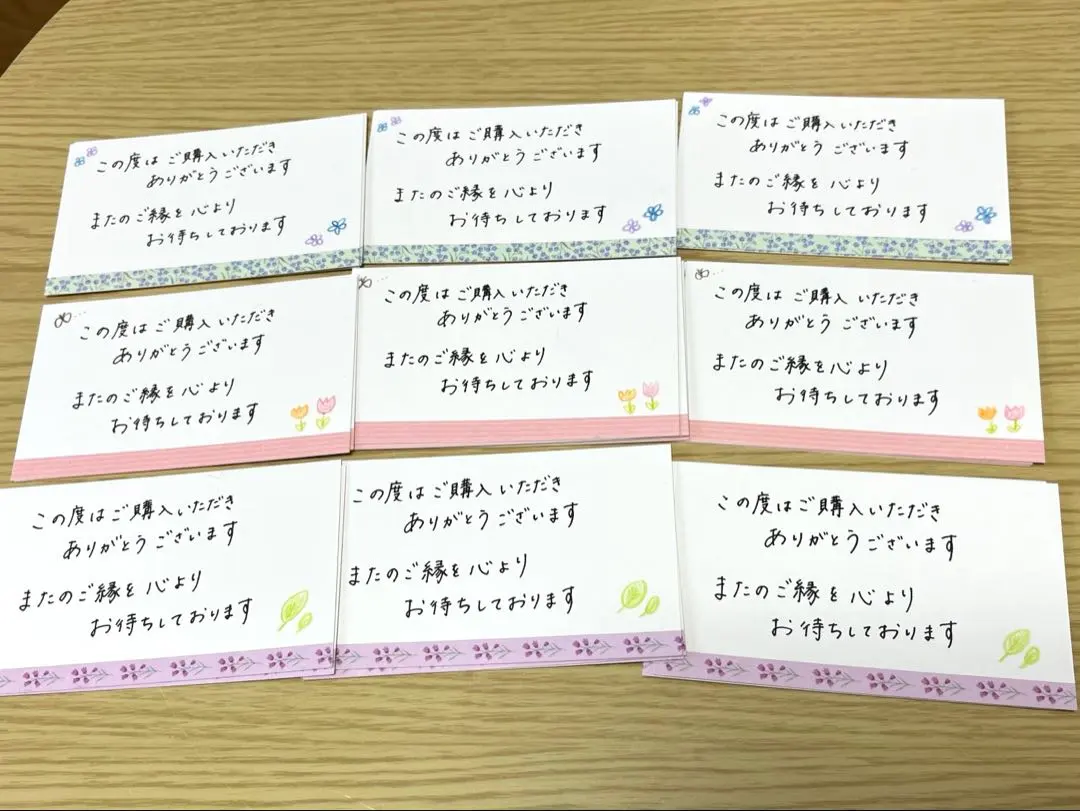 この度は ご購入いただき
ありがとうございます
またのご縁を心より
お待ちしております
この度は ご購入いただき
ありがとうございます
またのご縁を心より
お待ちしております
この度は ご購入いただき
ありがとう ございます
またのご縁を 心より
お待ちしております
この度は ご購入 いただき
ありがとうございます
またのご縁を心より
お待ちしております
この度は ご購入 いただき
ありがとう ございます
またのご縁を心より
お待ちしております
この度は ご購入 いただき
ありがとう ございます
またのご縁を心より
お待ちしております
この度は ご購入いただき
ありがとうございます
またのご縁を 心より
お待ちしております
この度は ご購入 いただき
ありがとう ございます
またのご縁を 心より
お待ちしております
この度は ご購入 いただき
ありがとう ございます
またのご縁を 心より
お待ちしております